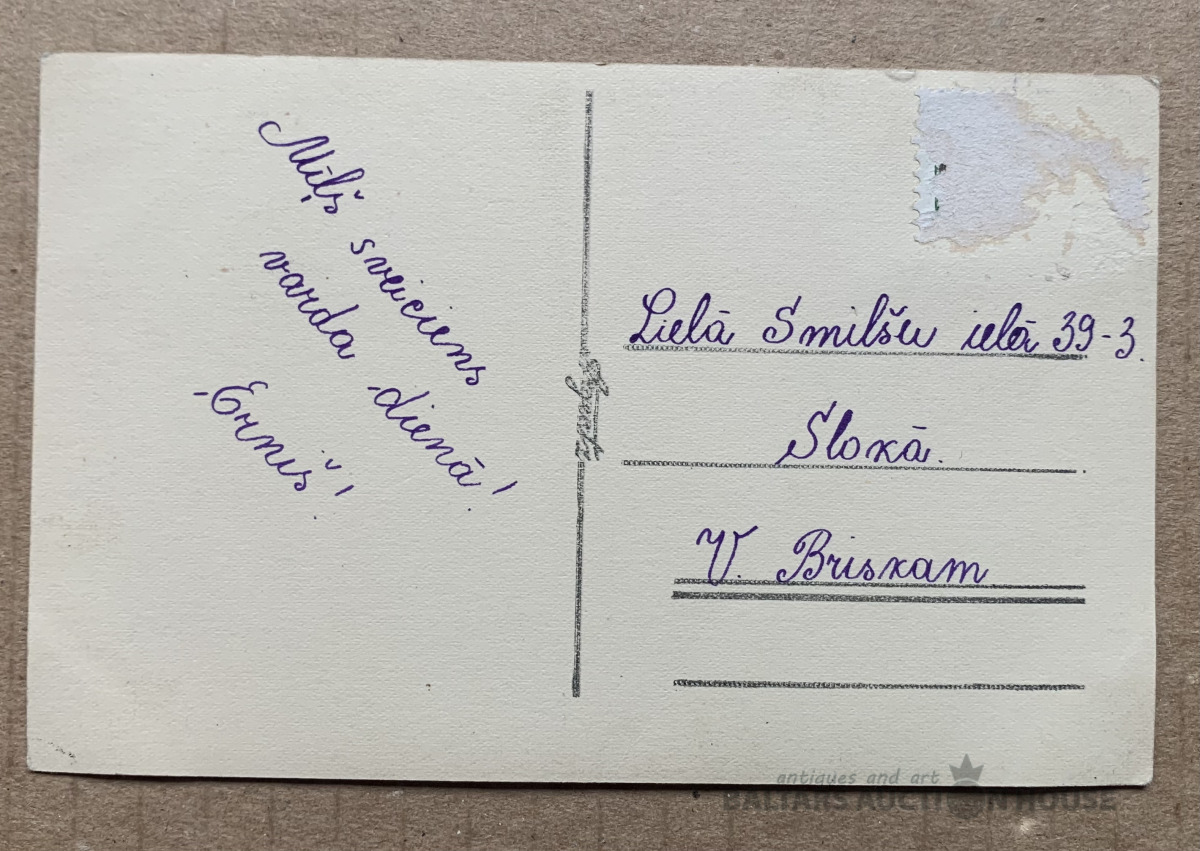 Mīļš sveiciens
varda dienā!
Erniš!
Lielā Smilšu ielā 39-3.
Slokā.
V. Briskam
antiques and art
BALTARS AUCTION HOUSE